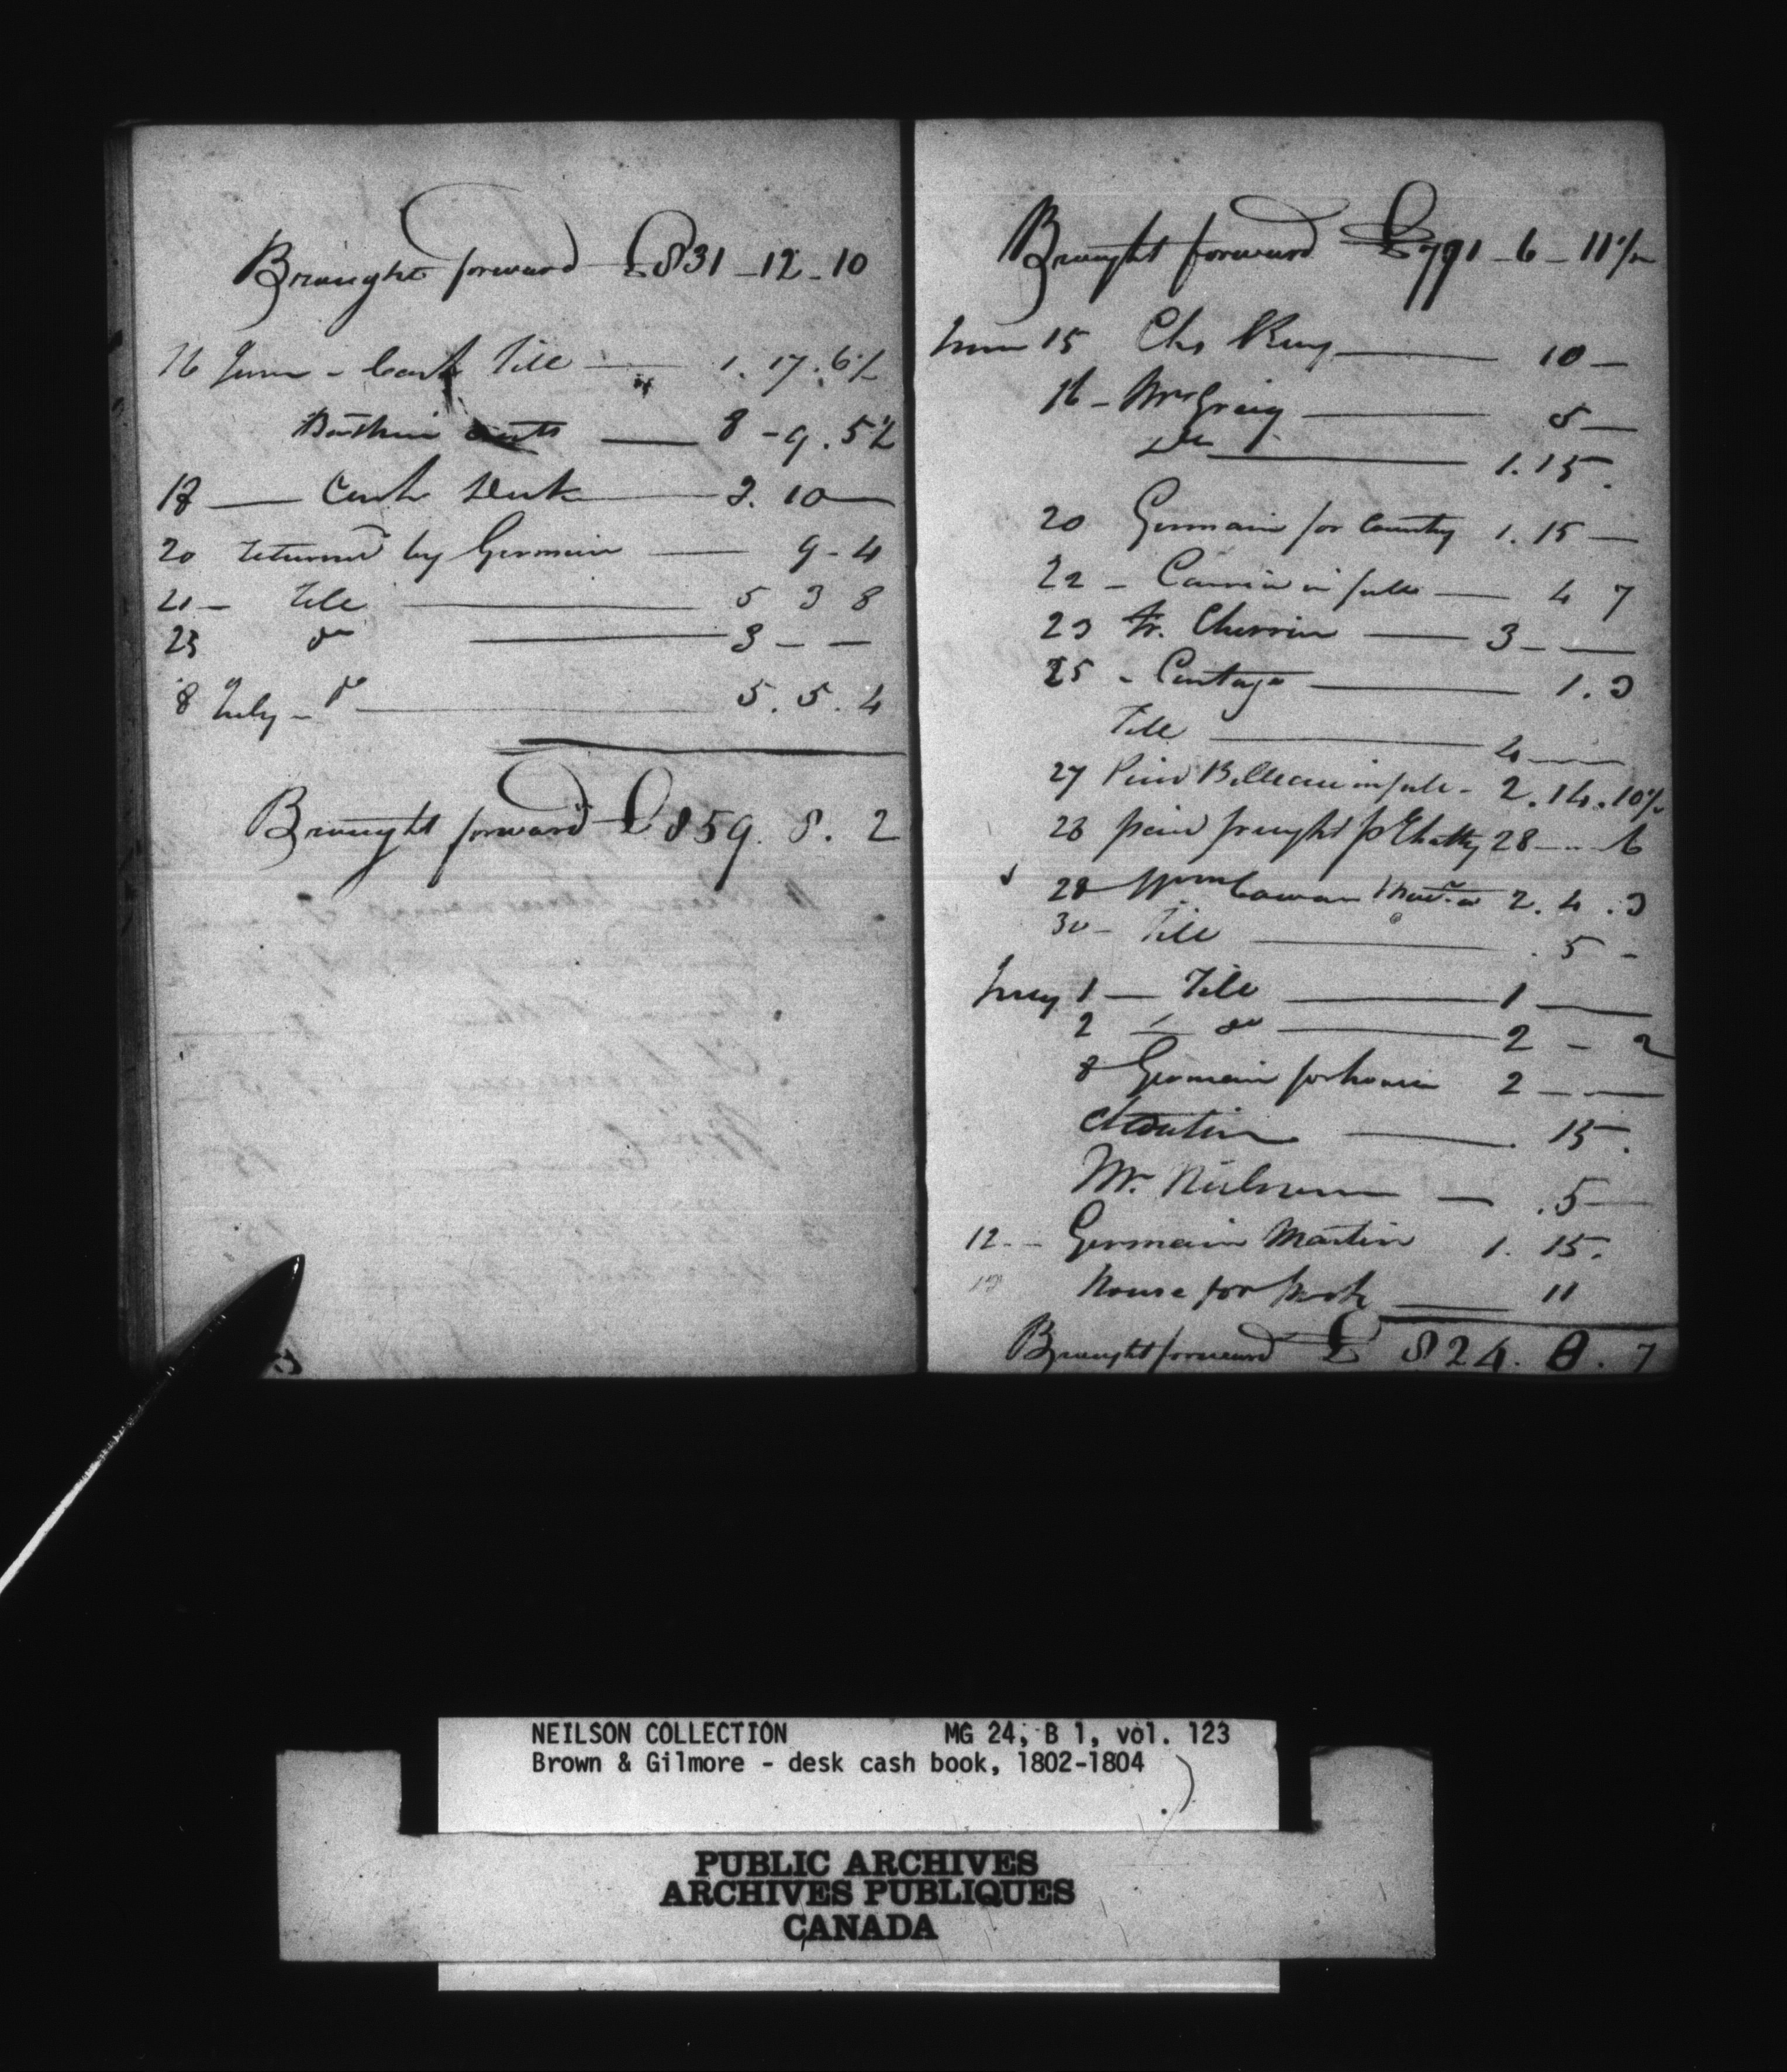 Brought forward £831 - 12 - 10
16 June - Cash Till — 1. 17. 6½
8 - 9. 5½
18 — Cash Desk — 2. 10 —
20 returned by Germain — 9 - 4
21 - Till — 5 3 8
23 do — 3 — —
8 July - do — 5. 5. 4
Brought forward £859. 8. 2
Brought forward £791 - 6 - 11½
June 15 Chs — 10 —
16 - Mr Greig — 5 —
Do — 1. 15.
20 Germain for Country 1. 15 —
22 - in full — 4 7
23 Fr. Cherrier — 3 - —
25 - Cartage — 1. 3
Till — 4 —
27 Paid Billeau in full - 2. 14. 10½
28 paid freight p 28 — 6
28 Wm Cowan 2. 4. 3
30 - Till — . 5 -
July 1 — Till — 1 —
2 — do — 2 - 2
8 Germain for house 2 - —
— 15.
Mr. Neilson — . 5 —
12 - Germain Martin 1. 15.
House for — 11
Brought forward £ 824. 8. 7
NEILSON COLLECTION MG 24, B 1, vol. 123
Brown & Gilmore - desk cash book, 1802-1804
PUBLIC ARCHIVES
ARCHIVES PUBLIQUES
CANADA